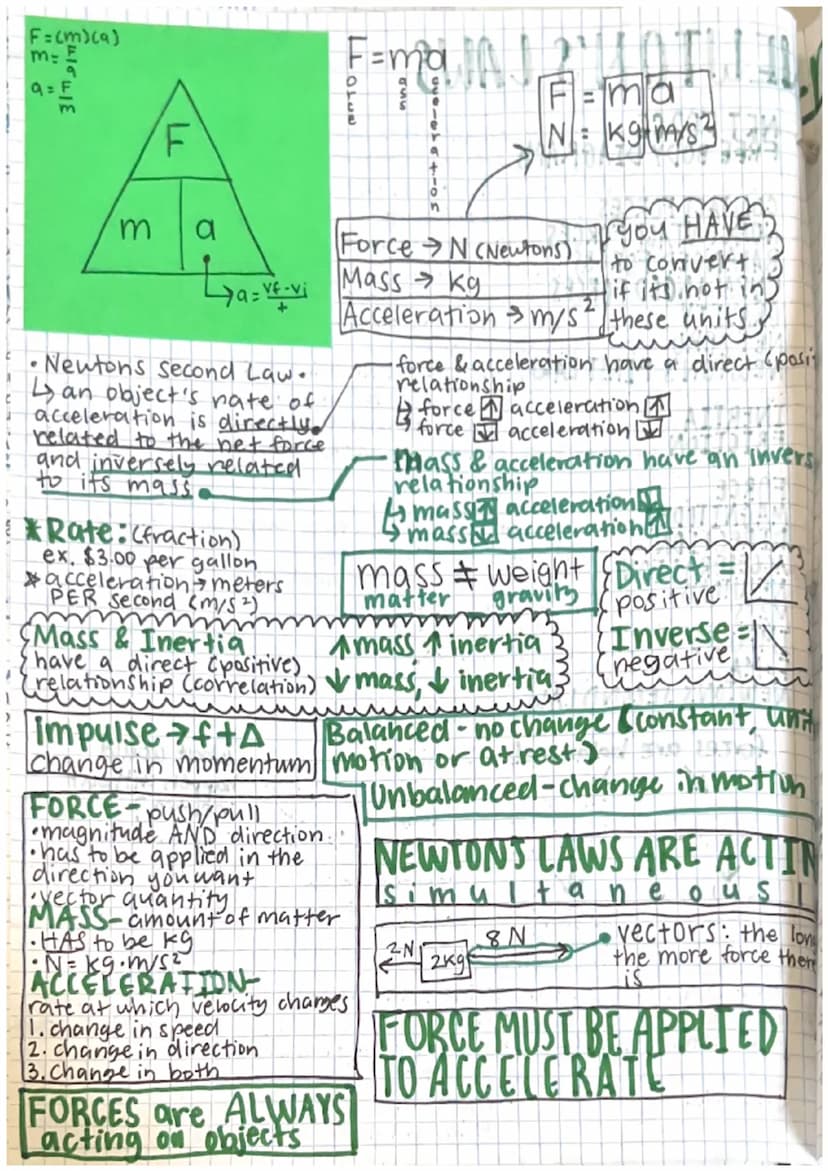 F=(m)(a)
m=F/a
a=F/m
F
m a
↳a=vf-vi/t
F=ma
Force
mass
acceleration
F = m a
N = kg m/s²
Force → N (Newtons)
Mass → kg
Acceleration → m/s²
you HAVE
to convert
if its not in
these units
• Newtons second Law.
↳ an object's rate of
acceleration is directly
related to the net force
and inversely related
to its mass
force & acceleration have a direct (posi
relationship
↳ force ↑ acceleration ↑
↳ force ↓ acceleration ↓
Mass & acceleration have an invers
relationship
↳ mass ↑ acceleration ↓
↳ mass ↓ acceleration ↑
*Rate: (fraction)
ex. $3.00 per gallon
* acceleration → meters
PER second (m/s²)
mass ≠ weight
matter gravity
Direct =
positive
Inverse =
negative
Mass & Inertia
have a direct (positive)
relationship (correlation)
↑mass ↑ inertia
↓ mass, ↓ inertia
Impulse → f t Δ
change in momentum
Balanced - no change (constant,
motion or at rest)
Unbalanced - change in motion
FORCE - push/pull
• magnitude AND direction
• has to be applied in the
direction you want
• vector quantity
MASS - amount of matter
• HAS to be kg
• N = kg·m/s²
ACCELERATION -
rate at which velocity changes
1. change in speed
2. change in direction
3. change in both
FORCES are ALWAYS
acting on objects
NEWTONS LAWS ARE ACTIN
simultaneousl
2N 2kg 8 N
vectors: the lon
the more force ther
is
FORCE MUST BE APPLIED
TO ACCELERATE